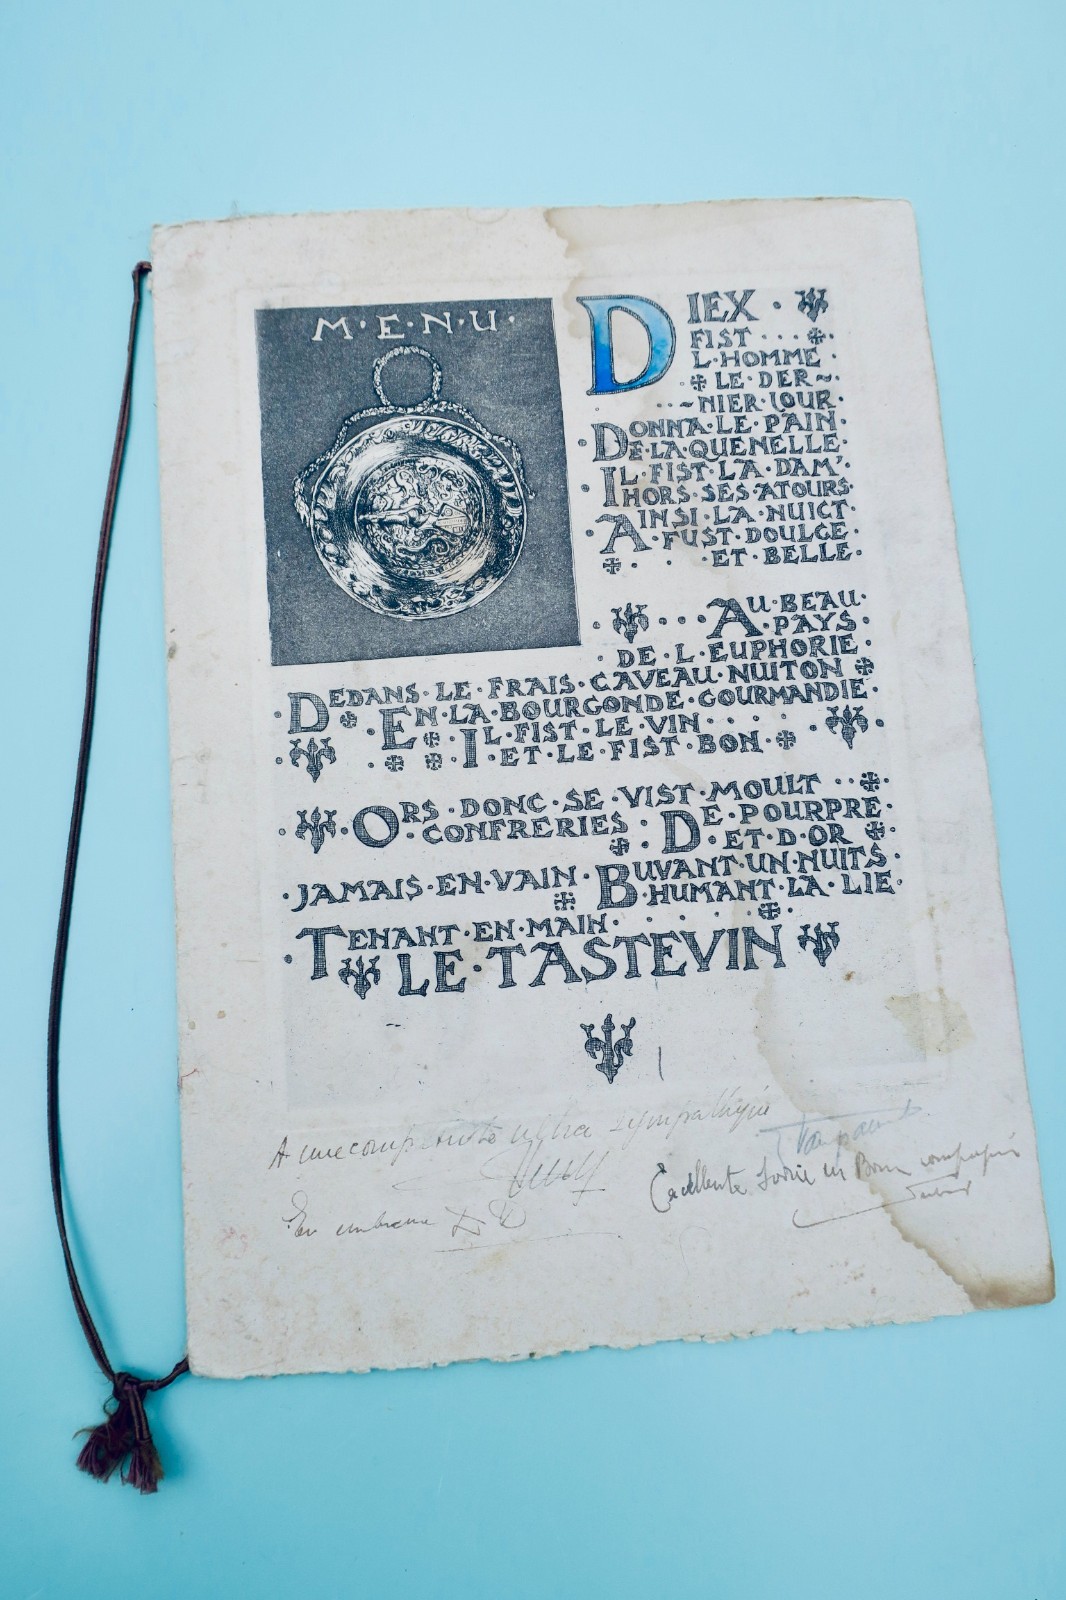 M·E·N·U·
DIEX·
FIST···
L·HOMME·
·LE·DER~·
···~NIER·IOUR·
DONNA·LE·PAIN·
DE·LA·QUENELLE·
·IL·FIST·LA·DAM'·
HORS·SES·ATOURS·
·AINSI·LA·NUICT·
FUST·DOULCE·
·ET·BELLE·
···AU·BEAU·
·PAYS·
·DE·L·EUPHORIE·
DEDANS·LE·FRAIS·CAVEAU·NUITON
·EN·LA·BOURGONDE·GOURMANDIE·
·IL·FIST·LE·VIN····
·ET·LE·FIST·BON·
·ORS·DONC·SE·VIST·MOULT··
·CONFRERIES·DE·POURPRE·
·ET·D·OR
·JAMAIS·EN·VAIN·BUVANT·UN·NUITS·
·HUMANT·LA·LIE·
·TENANT·EN·MAIN·
LE·TASTEVIN
A une compétente ultra sympathique
Excellente soirée en Bonne compagnie
En